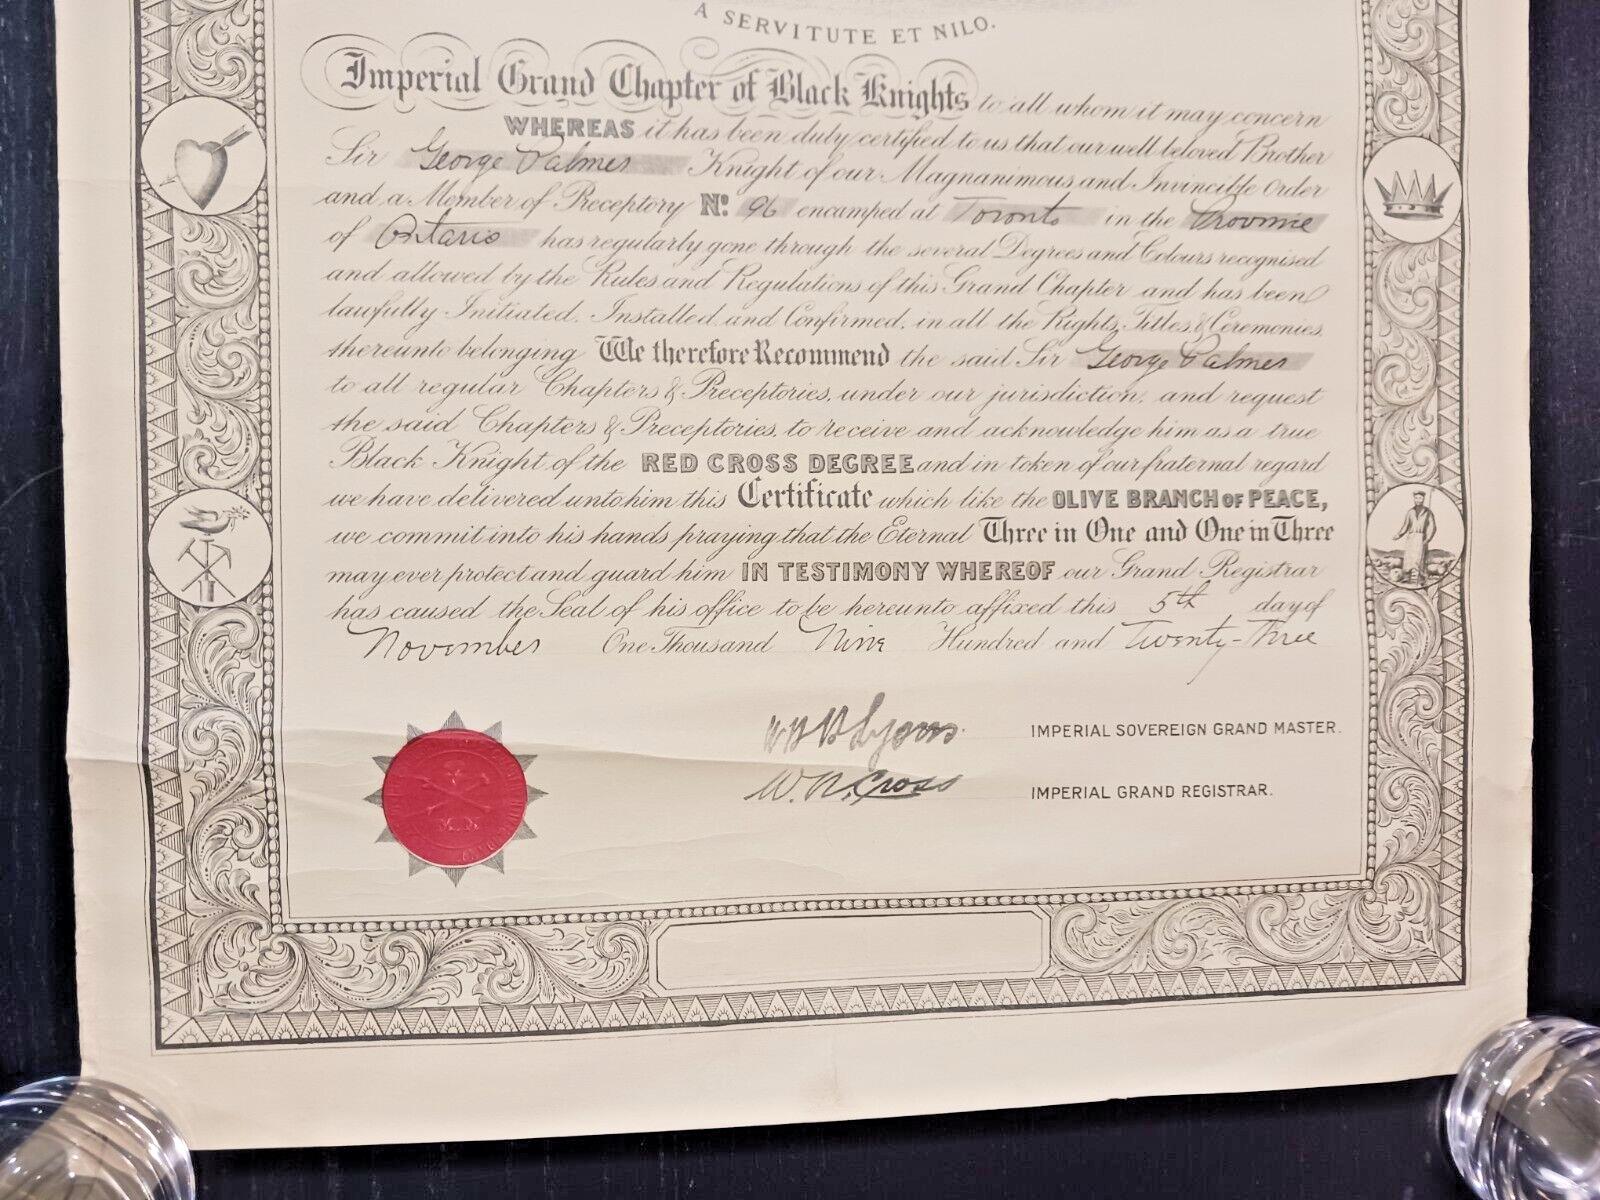 A SERVITUTE ET NILO.
Imperial Grand Chapter of Black Knights to all whom it may concern
WHEREAS it has been duly certified to us that our well beloved Brother
Sir George Palmer Knight of our Magnanimous and Invincible Order
and a Member of Preceptory No. 96 encamped at Toronto in the Province
of Ontario has regularly gone through the several Degrees and Colours recognised
and allowed by the Rules and Regulations of this Grand Chapter and has been
lawfully Initiated, Installed and Confirmed, in all the Rights, Titles, & Ceremonies
thereunto belonging We therefore Recommend the said Sir George Palmer
to all regular Chapters & Preceptories, under our jurisdiction, and request
the said Chapters & Preceptories, to receive and acknowledge him as a true
Black Knight of the RED CROSS DEGREE and in token of our fraternal regard
we have delivered unto him this Certificate which like the OLIVE BRANCH OF PEACE,
we commit into his hands praying that the Eternal Three in One and One in Three
may ever protect and guard him IN TESTIMONY WHEREOF our Grand Registrar
has caused the Seal of his office to be hereunto affixed this 5th day of
November One Thousand Nine Hundred and Twenty-Three
Lyons IMPERIAL SOVEREIGN GRAND MASTER.
W. R. Cross IMPERIAL GRAND REGISTRAR.